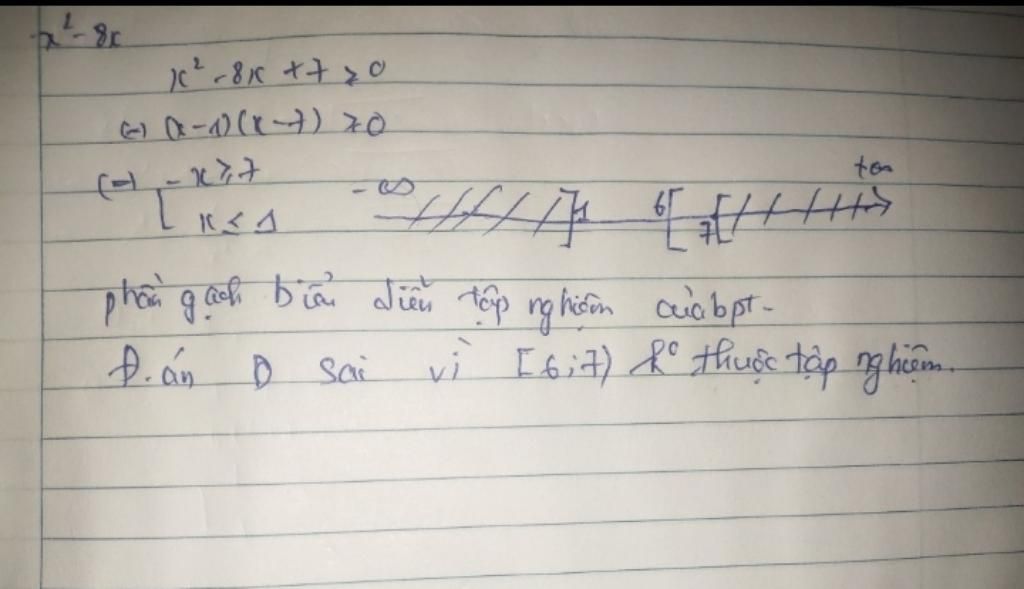 x² - 8x
x² - 8x + 7 ≥ 0
(=) (x-1)(x-7) ≥ 0
(=) [ x ≥ 7
x ≤ 1
-∞ ]1 6[ 7[ +∞
phần gạch biểu diễn tập nghiệm của bpt.
Đ.án D sai vì [6;7) k° thuộc tập nghiệm.